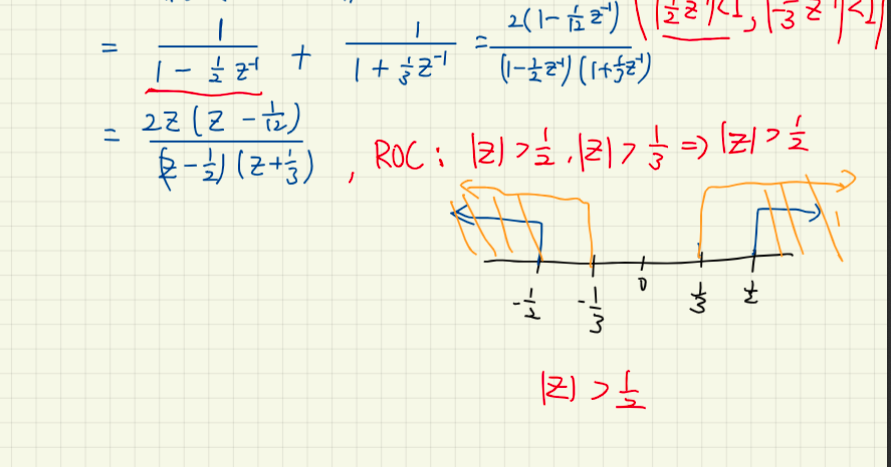 = 1/(1 - 1/2 z⁻¹) + 1/(1 + 1/3 z⁻¹) = 2(1 - 1/12 z⁻¹)/((1 - 1/2 z⁻¹)(1 + 1/3 z⁻¹)) (|1/2 z⁻¹|<1, |-1/3 z⁻¹|<1)
= 2z(z - 1/12)/((z - 1/2)(z + 1/3)), ROC : |z| > 1/2, |z| > 1/3 => |z| > 1/2
-1/2 -1/3 0 1/3 1/2
|z| > 1/2